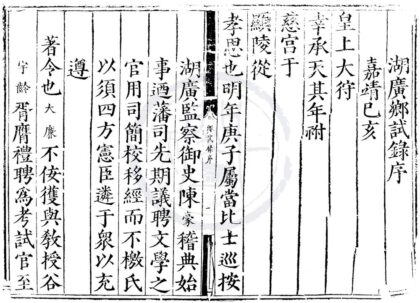 湖廣鄉試錄序
嘉靖己亥
皇上大狩
幸承天其年祔
慈宮于
顯陵從
孝思也明年庚子屬當比士巡按
湖廣監察御史陳豪稽典始
事迺藩司先期議聘文學之
官用司簡校移經而不檄氏
以須四方憲臣遴于衆以充
遵
著令也大廉不佞獲與敎授谷
宇齡胥膺禮聘爲考試官至